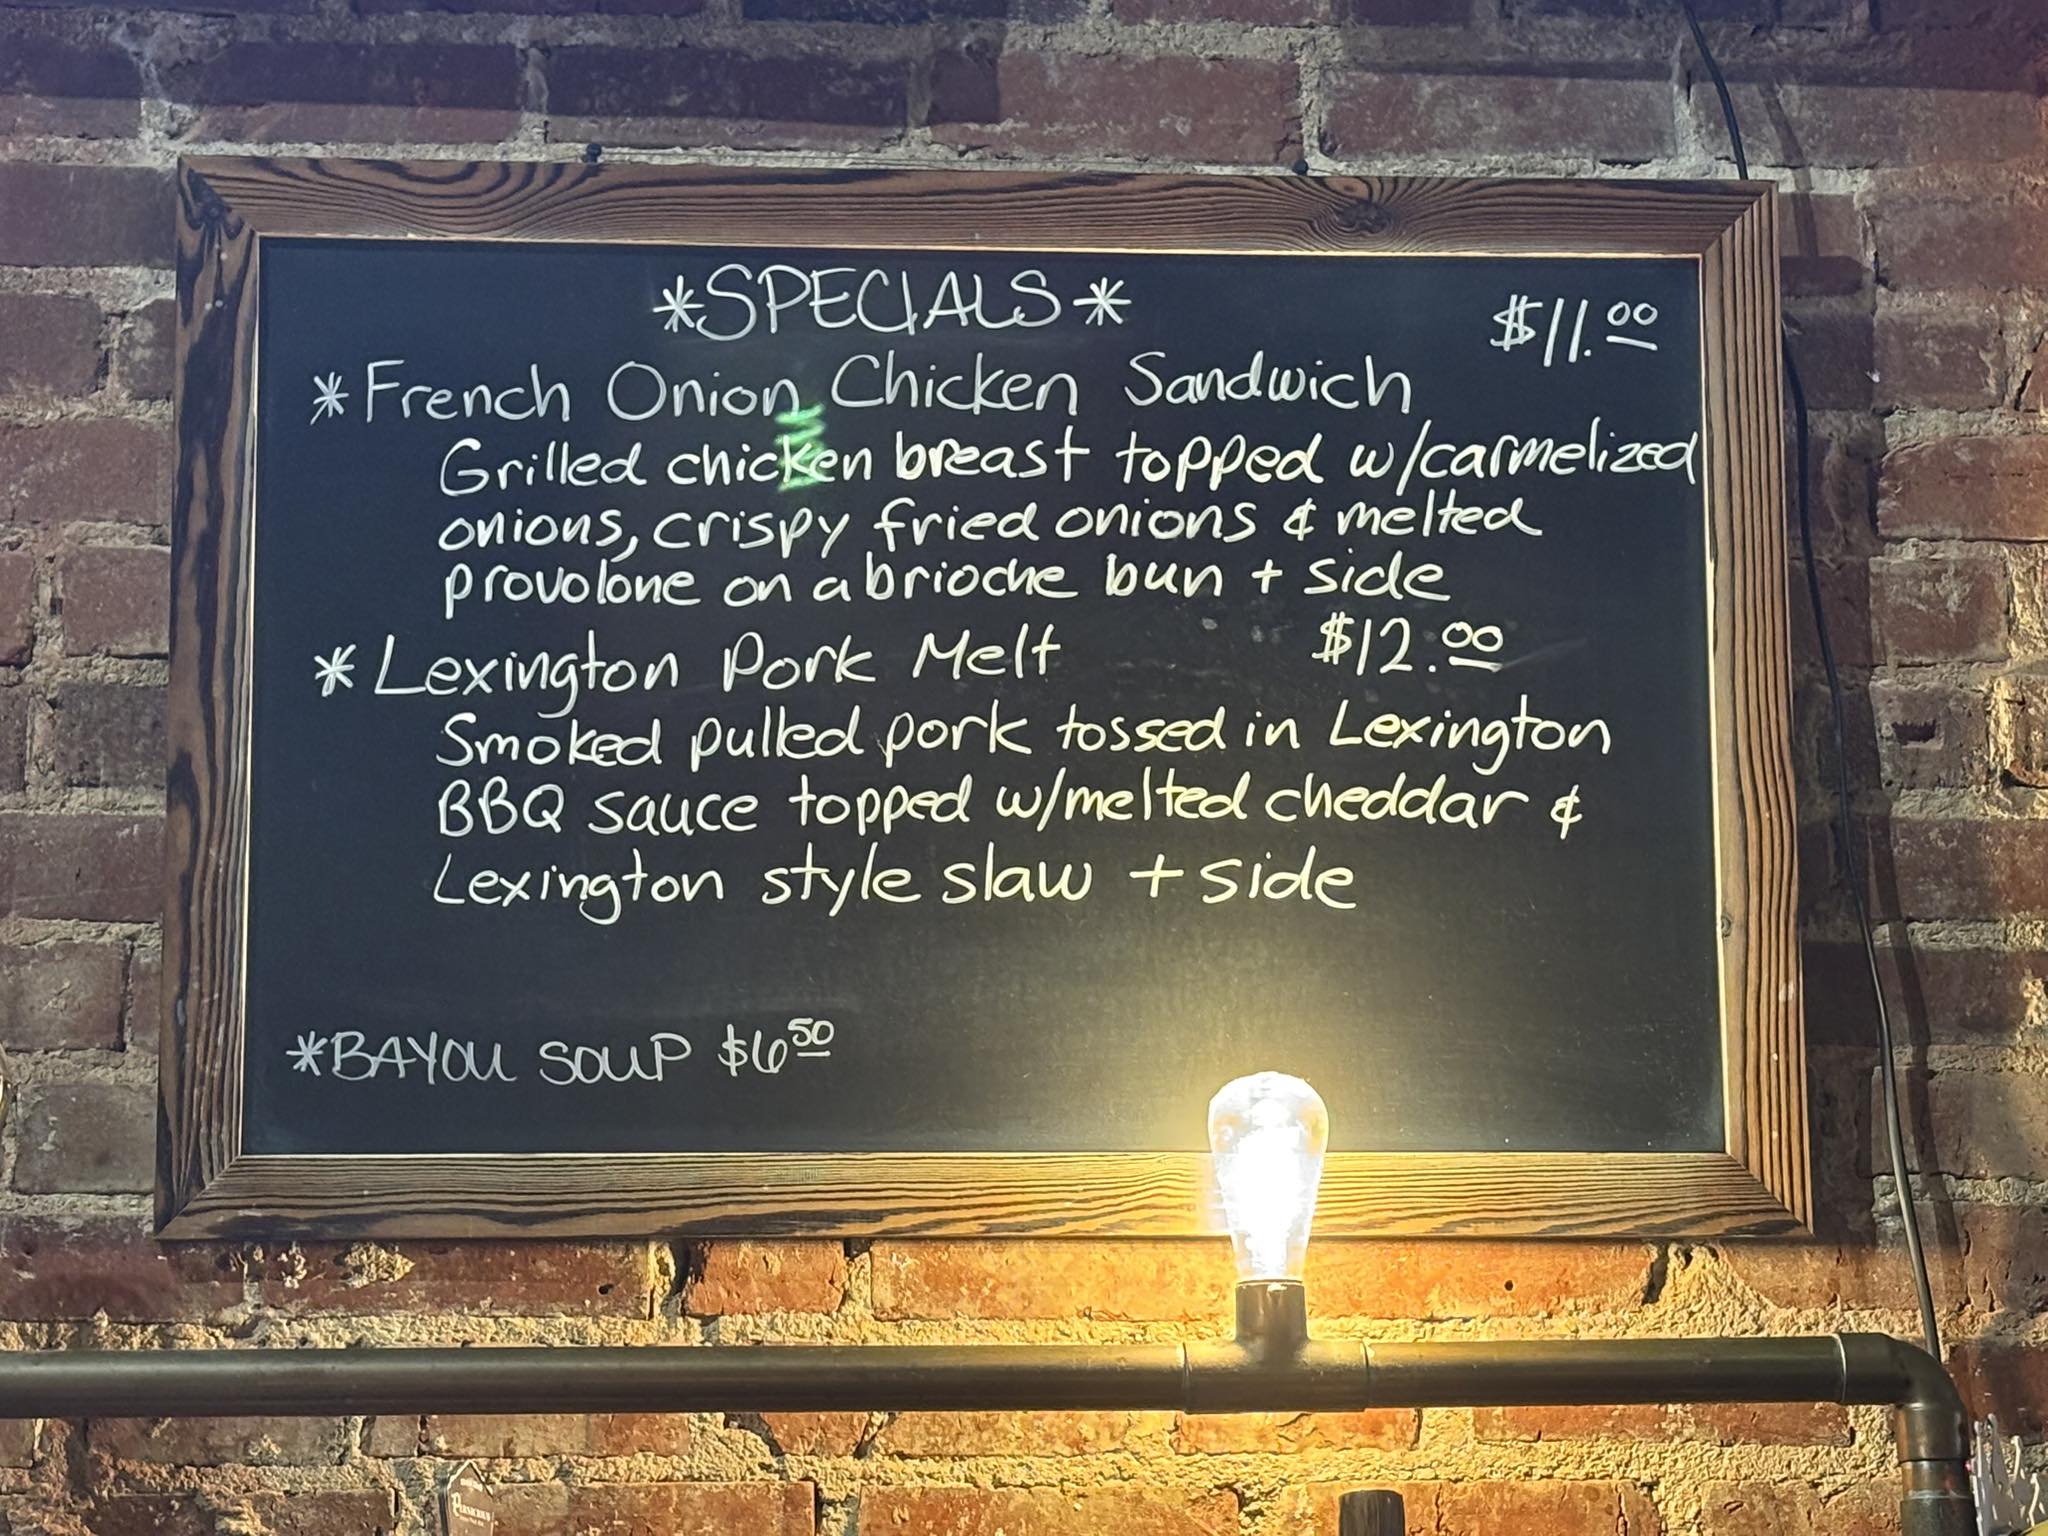 *SPECIALS*
$11.00
*French Onion Chicken Sandwich
Grilled chicken breast topped w/carmelized
onions, crispy fried onions & melted
provolone on a brioche bun + side
*Lexington Pork Melt $12.00
Smoked pulled pork tossed in Lexington
BBQ sauce topped w/melted cheddar &
Lexington style slaw + side
*BAYOU SOUP $6.50